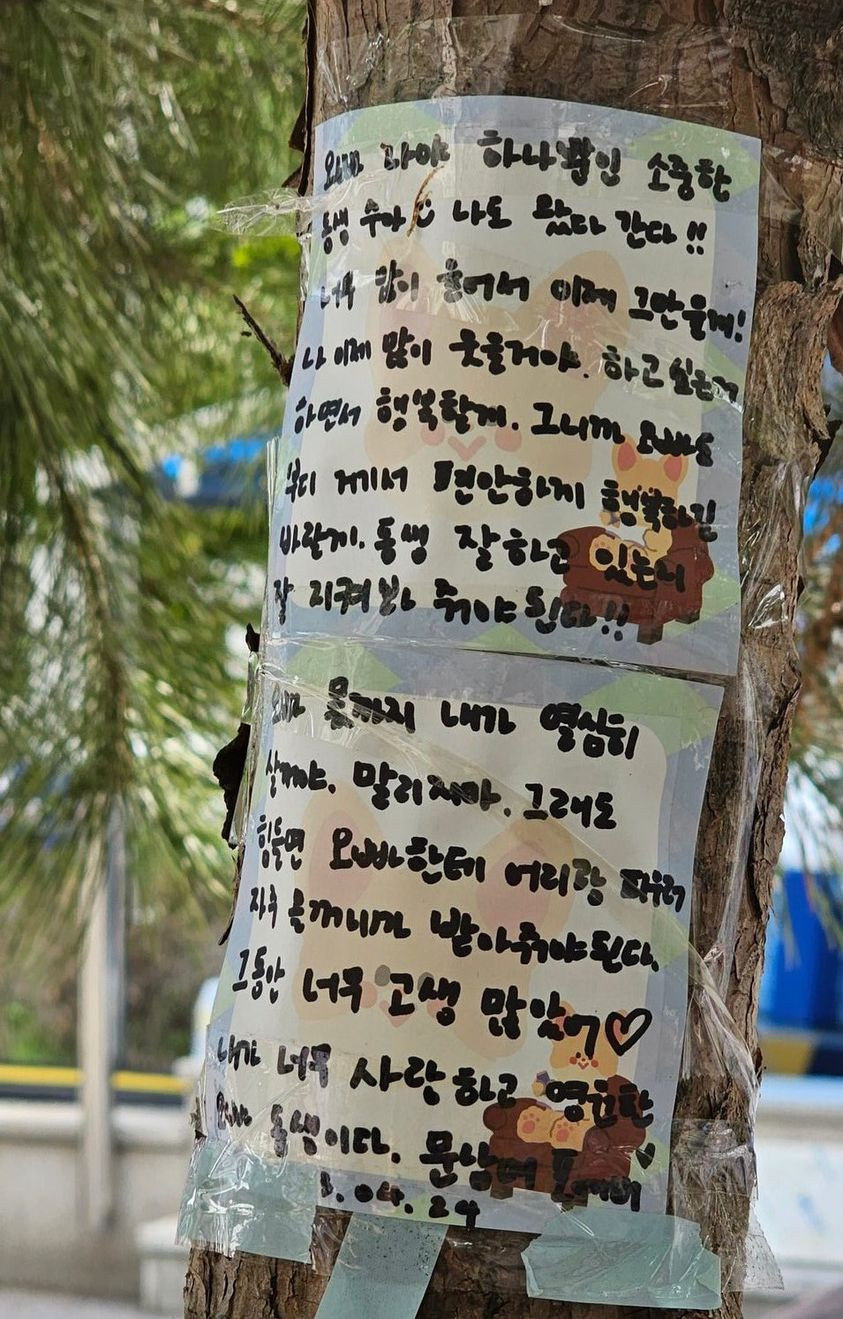 오빠 나야 하나뿐인 소중한
동생 수아 나도 왔다 간다!!
너무 많이 울어서 이제 그만울게!
나 이제 많이 웃을거야. 하고싶은거
하면서 행복할게. 그니까 오빠도
부디 거기서 편안하게 행복하길
바랄게. 동생 잘하고 있는지
잘 지켜봐 줘야 된다!!
오빠 몫까지 내가 열심히
살거야. 말리지마. 그래도
힘들면 오빠한테 어리광 피우러
자주 올꺼니까 받아줘야된다.
그동안 너무 고생 많았어♡
내가 너무 사랑하고 영원한
오빠 동생이다.
3. 04. 24